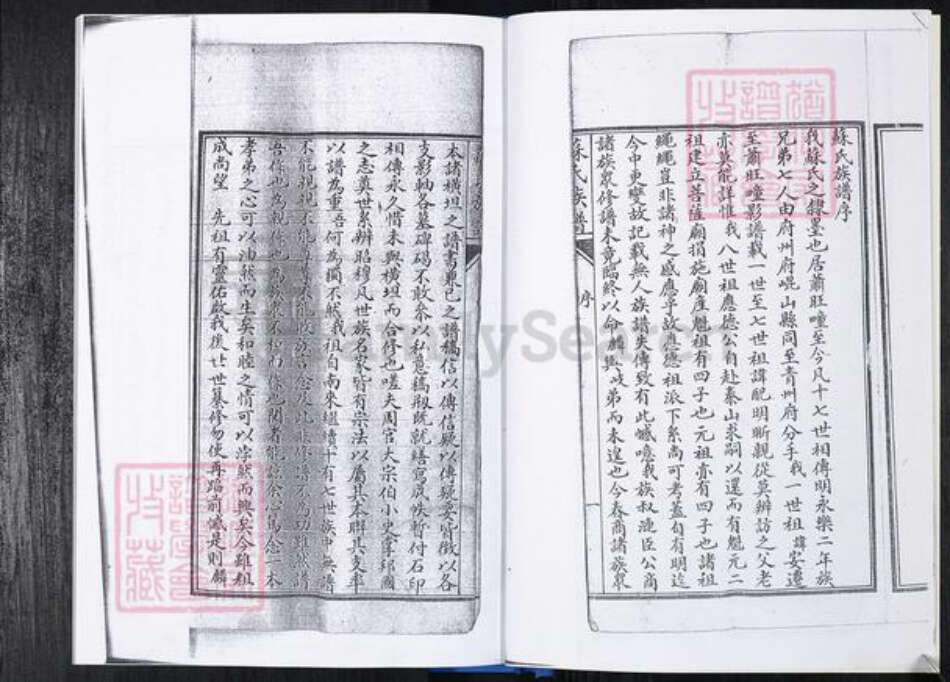 蘇氏族譜序
我蘇氏之隸墨也居蕭旺疃至今凡十七世相傳明永樂二年族
兄弟七人由府州府崐山縣同至青州府分手我一世祖諱安遷
至蕭旺疃影譜載一世至七世祖諱配明晰覯從莫辨訪之父老
亦莫能詳惟我八世祖應德公自赴泰山求嗣以還而有魁元二
祖建立菩薩廟捐施廟產魁祖有四子也元祖亦有四子也諸祖
繩繩豈非諸神之感應乎故應德祖派下系尚可考蓋自有明迄
今中更變故記載無人族譜失傳致有此憾噫我族叔漣臣公商
諸族眾修譜未竟臨終以命麟興歧弟而未遑也今春商諸族眾
蘇氏族譜
序
本諸橫坦之譜書兼已之譜稿信以傳信疑以傳疑要皆徵以各
支影軸各墓碑碣不敢參以私意稿既就繕寫成帙暫付石印
相傳永久惜未與橫坦而合修也嗟夫周官大宗伯小史掌邦國
之志奠世系辨昭穆凡世族名家皆有宗法以屬其本聯其支率
以譜為重吾何為獨不然我祖自南來繼續十有七世族中無譜
不能親親不能
吾族也為親族也為族眾不和而族地閱者能
孝弟之心可以油然而生矣和睦之情可以浡然而興矣今雖粗
成尚望 先祖有靈佑啟我後廿世纂修勿使再蹈前憾是則麟
譜學會
收藏